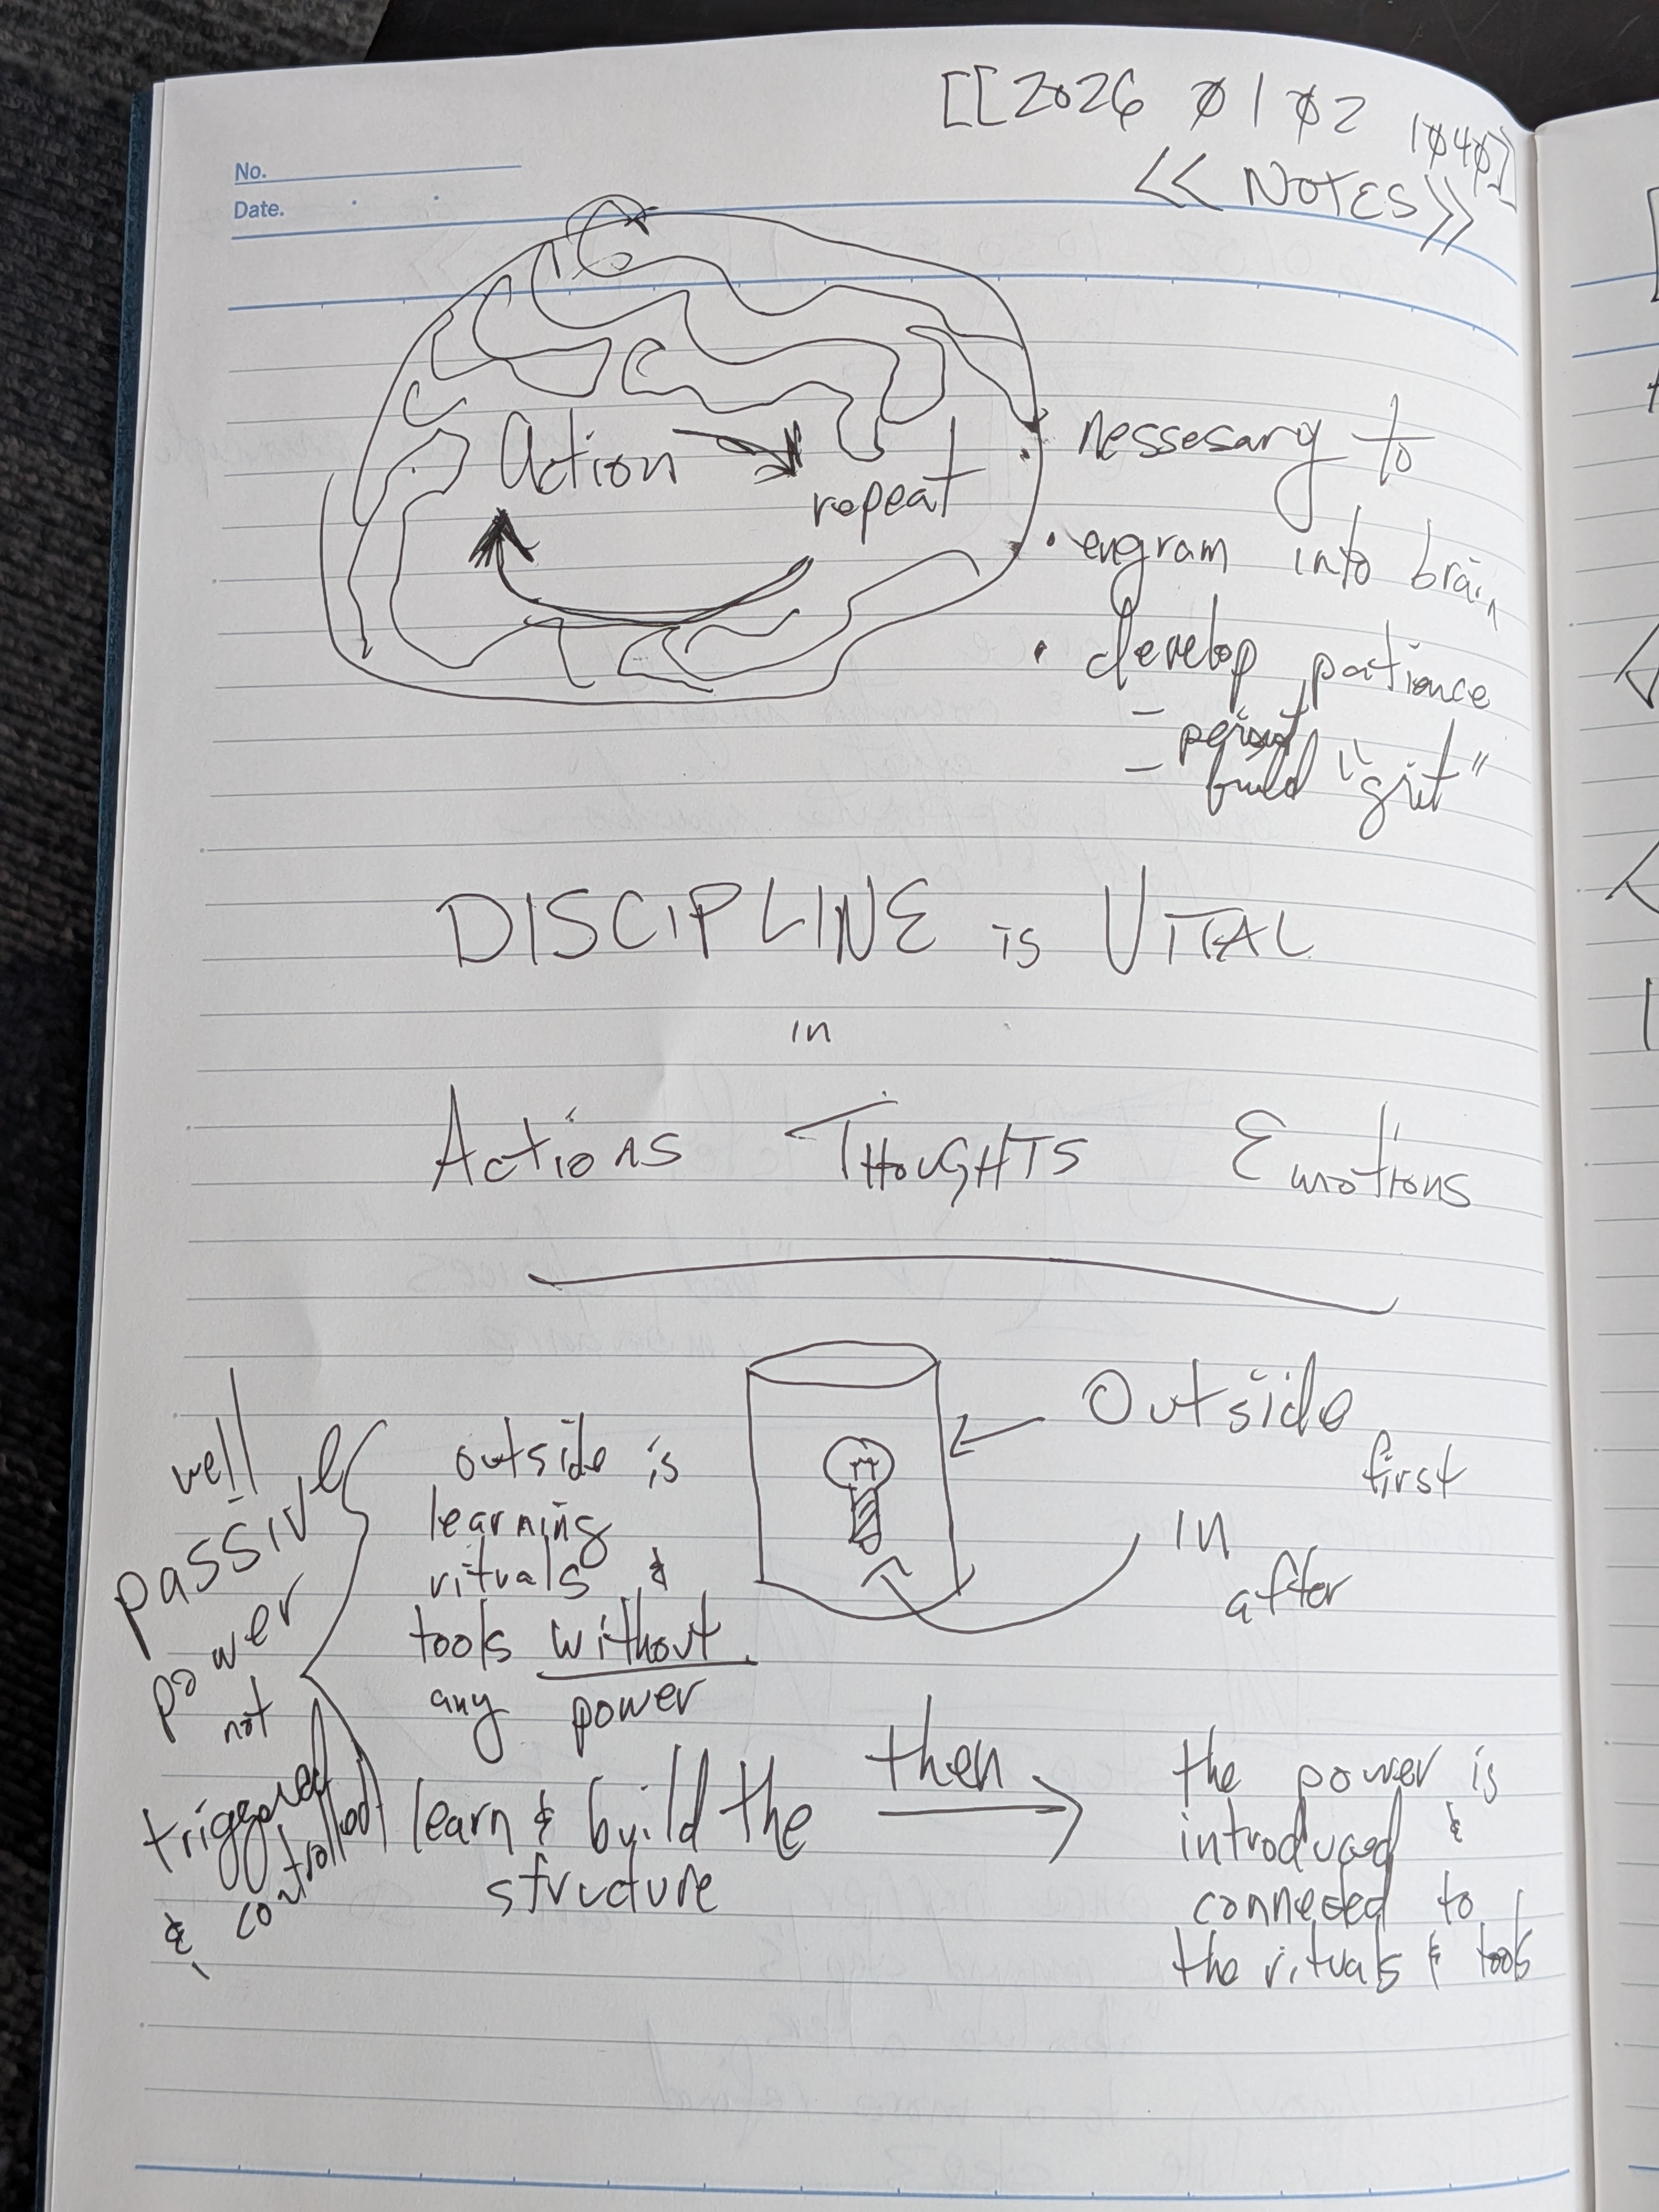 [[2026 01 02 1040]]
<< NOTES >>
No.
Date.
Action
repeat
• nessesary to
• engram into brain
• develop patience
- persist
- build "grit"
DISCIPLINE is VITAL
in
Actions THOUGHTS Emotions
Outside
first
in
after
outside is
learning
rituals &
tools without
any power
well
passive
power
not
triggered
& controlled
learn & build the
structure
then
the power is
introduced &
connected to
the rituals & tools